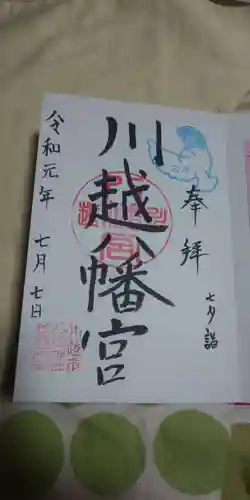 奉拝
七夕詣
川越八幡宮
令和元年 七月 七日